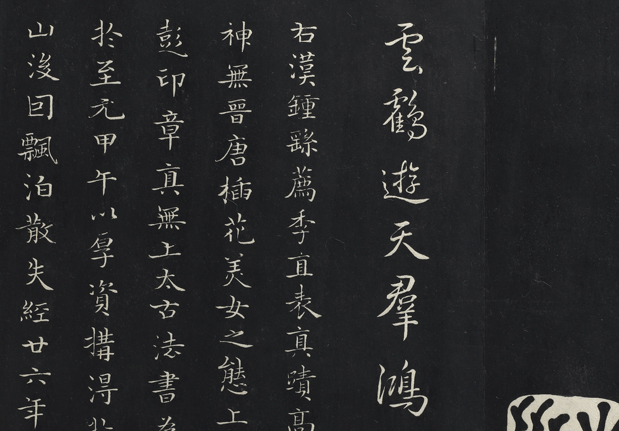 雲鶴遊天羣鴻
右漢鍾繇薦季直表真蹟高
神無晉唐插花美女之態上
彭印章真無上太古法書為
於至元甲午以厚資搆得於
山後因飄泊散失經廿六年